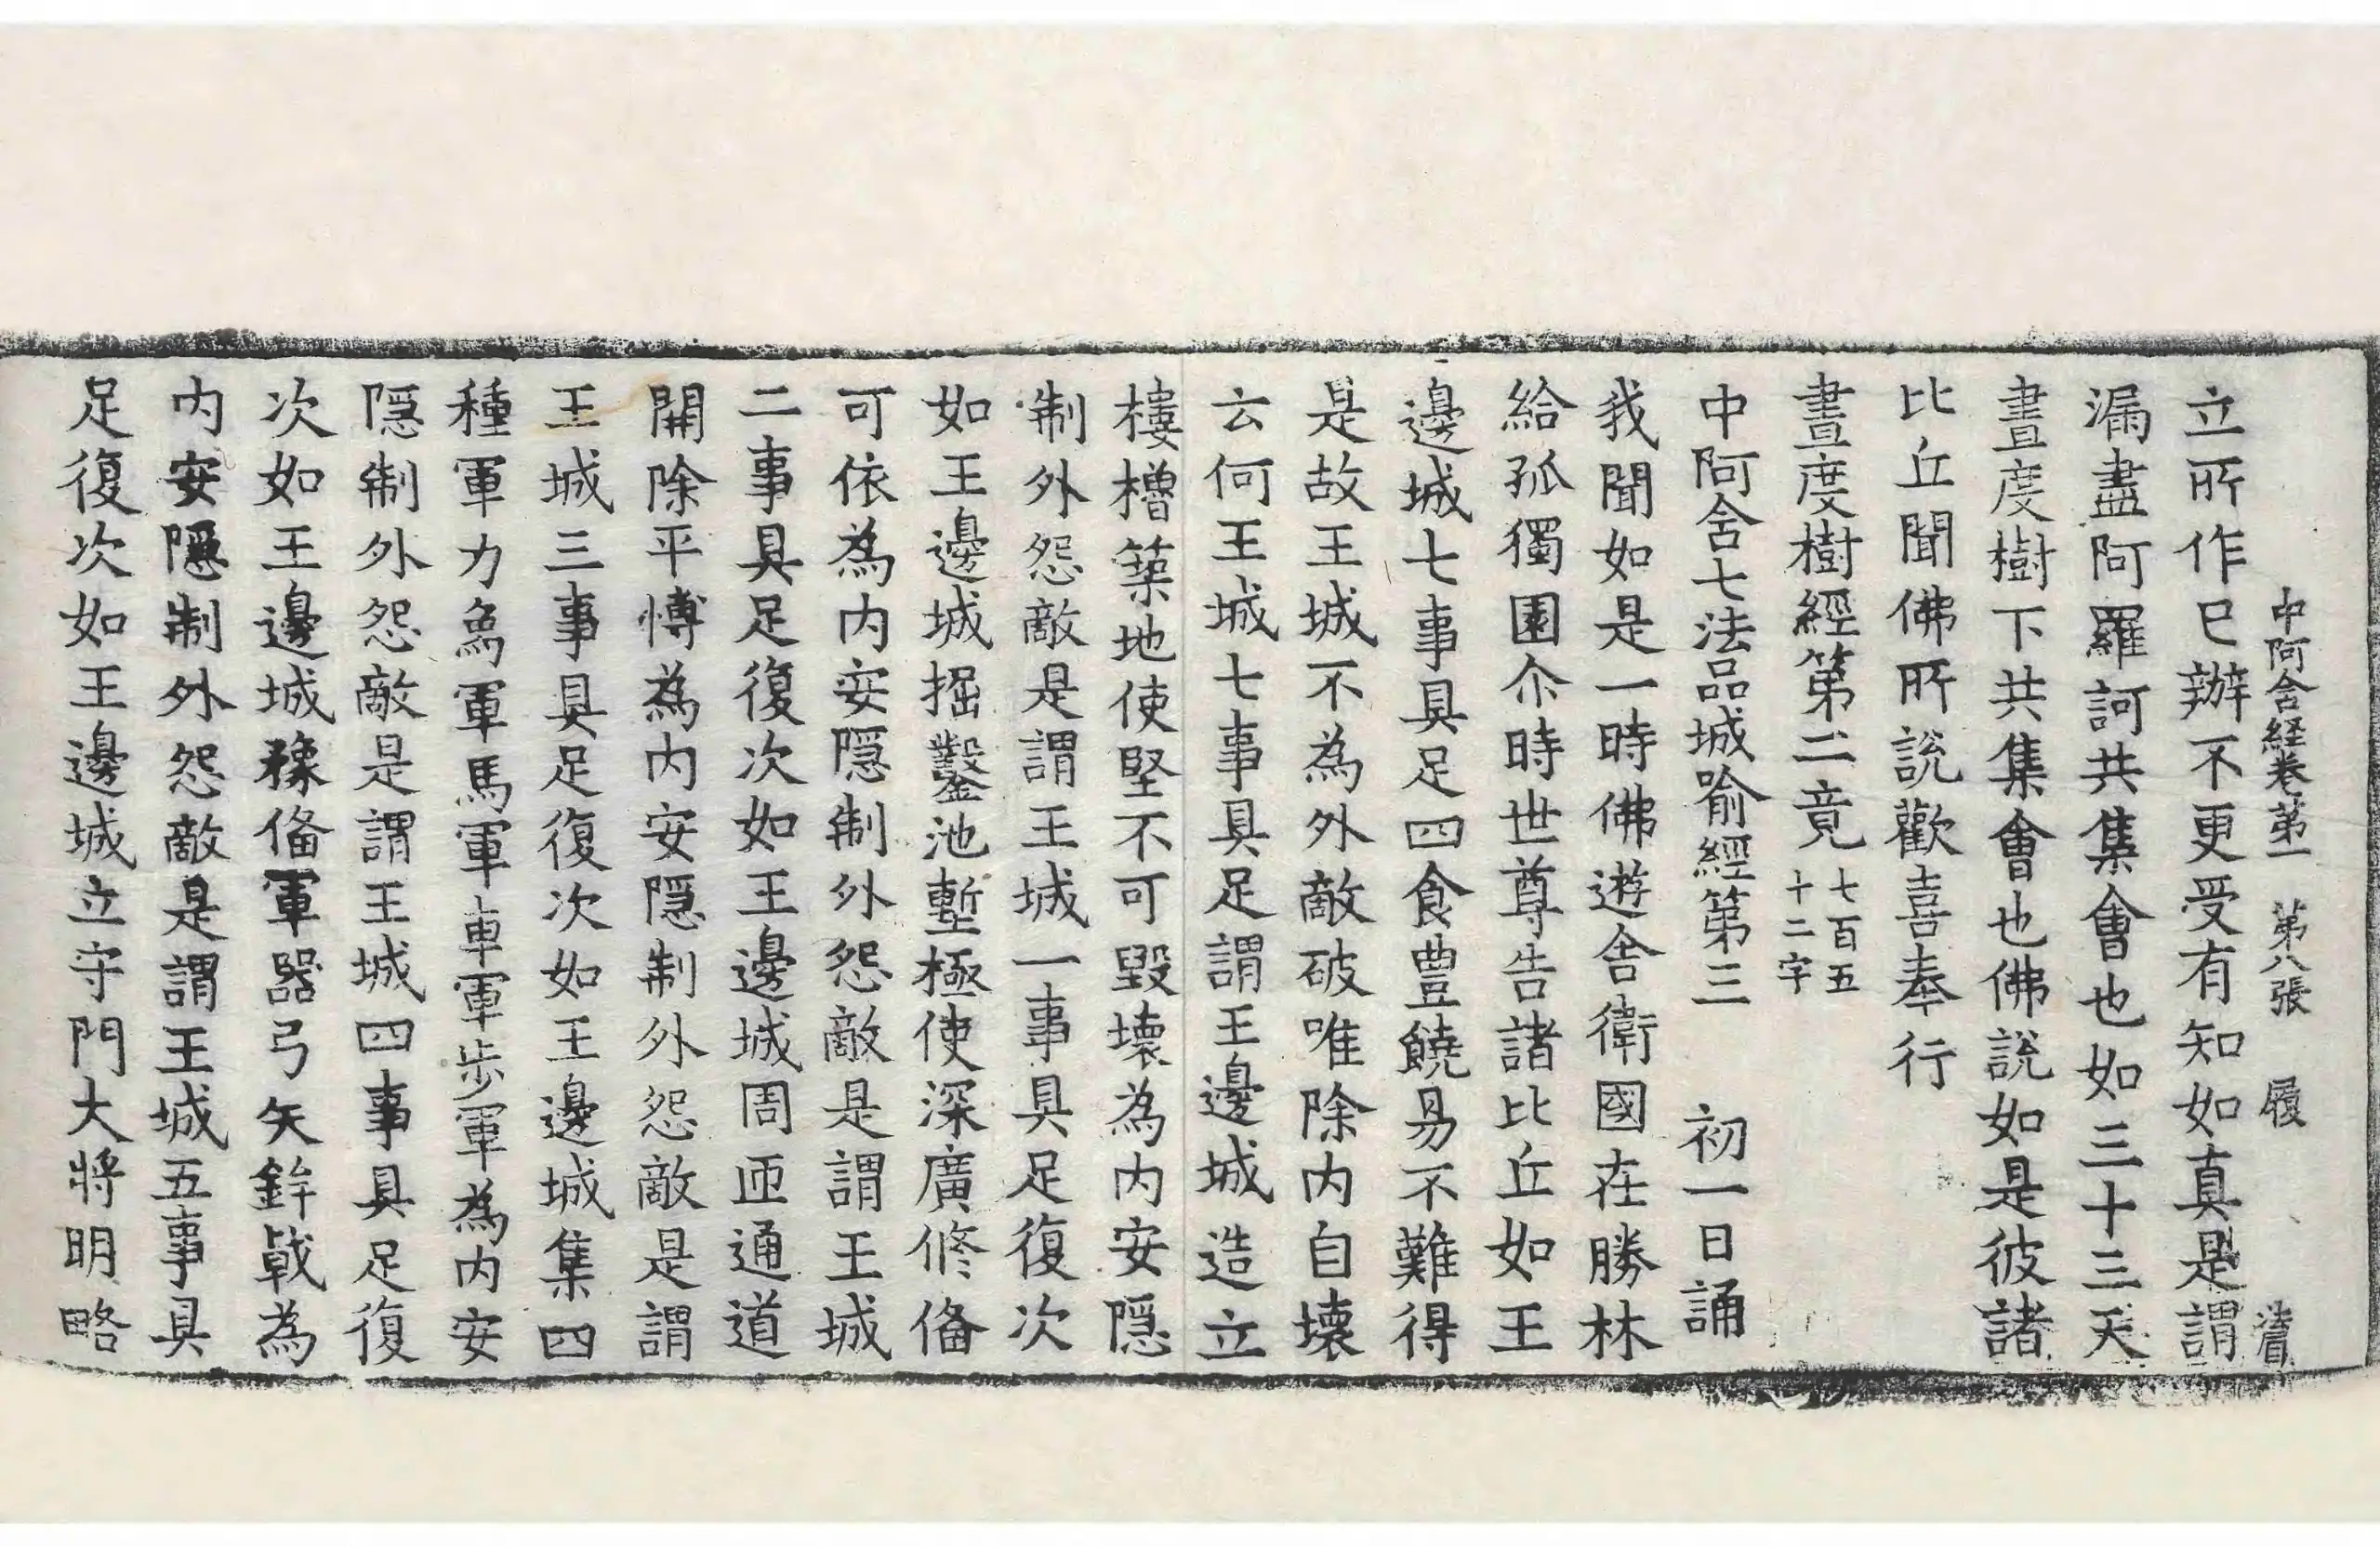 中阿含経卷第一　第八張　履
立所作已辦不更受有知如真是謂
漏盡阿羅訶共集會也如三十三天
晝度樹下共集會也佛說如是彼諸
比丘聞佛所說歡喜奉行
晝度樹經第二竟七百五十二字
中阿含七法品城喻經第三　初一日誦
我聞如是一時佛遊舍衛國在勝林
給孤獨園尒時世尊告諸比丘如王
邊城七事具足四食豊饒易不難得
是故王城不為外敵破唯除內自壞
云何王城七事具足謂王邊城造立
樓櫓築地使堅不可毀壞為內安隱
制外怨敵是謂王城一事具足復次
如王邊城掘鑿池壍極使深廣修備
可依為內安隱制外怨敵是謂王城
二事具足復次如王邊城周匝通道
開除平愽為內安隱制外怨敵是謂
王城三事具足復次如王邊城集四
種軍力象軍馬軍車軍步軍為內安
隱制外怨敵是謂王城四事具足復
次如王邊城豫俻軍器弓矢鉾戟為
內安隱制外怨敵是謂王城五事具
足復次如王邊城立守門大將明略